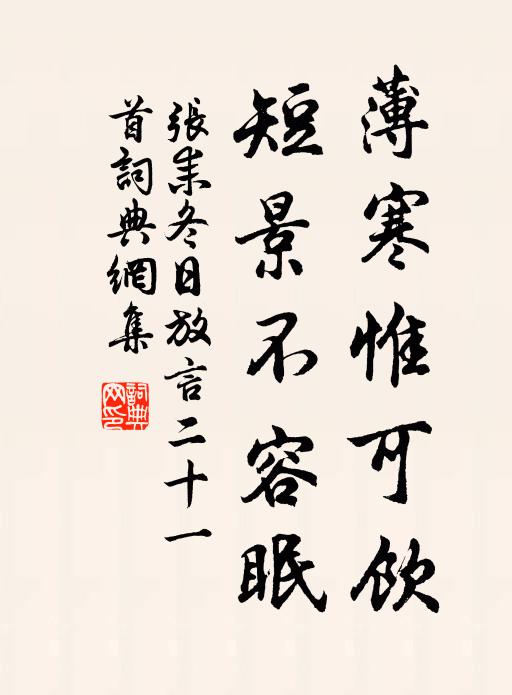 薄寒惟可飲
短景不容眠
張耒冬日放言二十一
首詞典網集
詞典
网印